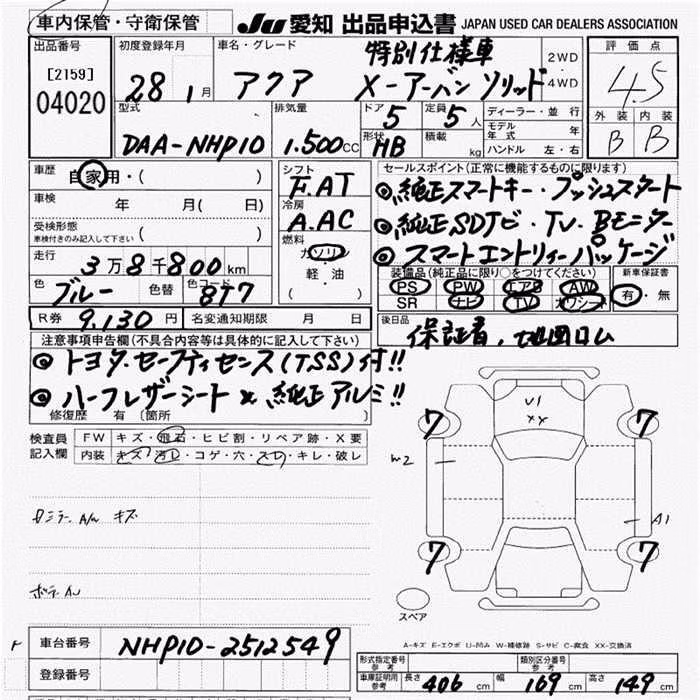 車内保管・守衛保管
Ju 愛知 出品申込書 JAPAN USED CAR DEALERS ASSOCIATION
出品番号
[2159]
04020
初度登録年月
28 1月
車名・グレード
特別仕様車
アクア X-アーバン ソリッド
2WD
・
4WD
評価点
4.5
外装 内装
B B
型式
DAA-NHP10
排気量
1.500cc
ドア
5
定員
5人
形状
HB
積載
kg
ディーラー・並行
モデル年式 年
ハンドル 左・右
車歴
自家用・( )
車検 年 月( 日)
受検形態
車検付きのみ記入して下さい ( )
走行
3万8千800km
色
ブルー
色替
色コード
8T7
シフト
F.AT
冷房
A.AC
燃料
ガソリン
軽・油
セールスポイント(正常に機能するものに限ります)
◎純正スマートキー・プッシュスタート
◎純正SDナビ・TV・Bモニター
◎スマートエントリィーパッケージ
装備品(純正品に限り○をつけてください)
PS PW エアB AW
SR ナビ TV カワシート
新車保証書
有・無
R券 9.130円
名変通知期限 月 日
後日品
保証書、地図ロム
注意事項申告欄(不具合内容等は具体的に記入して下さい)
◎トヨタ・セーフティセンス(TSS)付!!
◎ハーフレザーシート×純正アルミ!!
修復歴 有〔箇所 〕
検査員記入欄
FW キズ・飛石・ヒビ割・リペア跡・X要
内装 キズ・汚レ・コゲ・穴・スレ・キレ・破レ
A/u キズ
A/u
U1
XX
7 7
m2
A1
7 7
スペア
A-キズ E-エクボ U-凹み W-補修跡 S-サビ C-腐食 XX-交換済
F
車台番号 NHP10-2512549
登録番号
形式指定番号
参考
類別区分番号
参考
車庫証明用
参考
長さ 406cm 幅 169cm 高さ 149cm